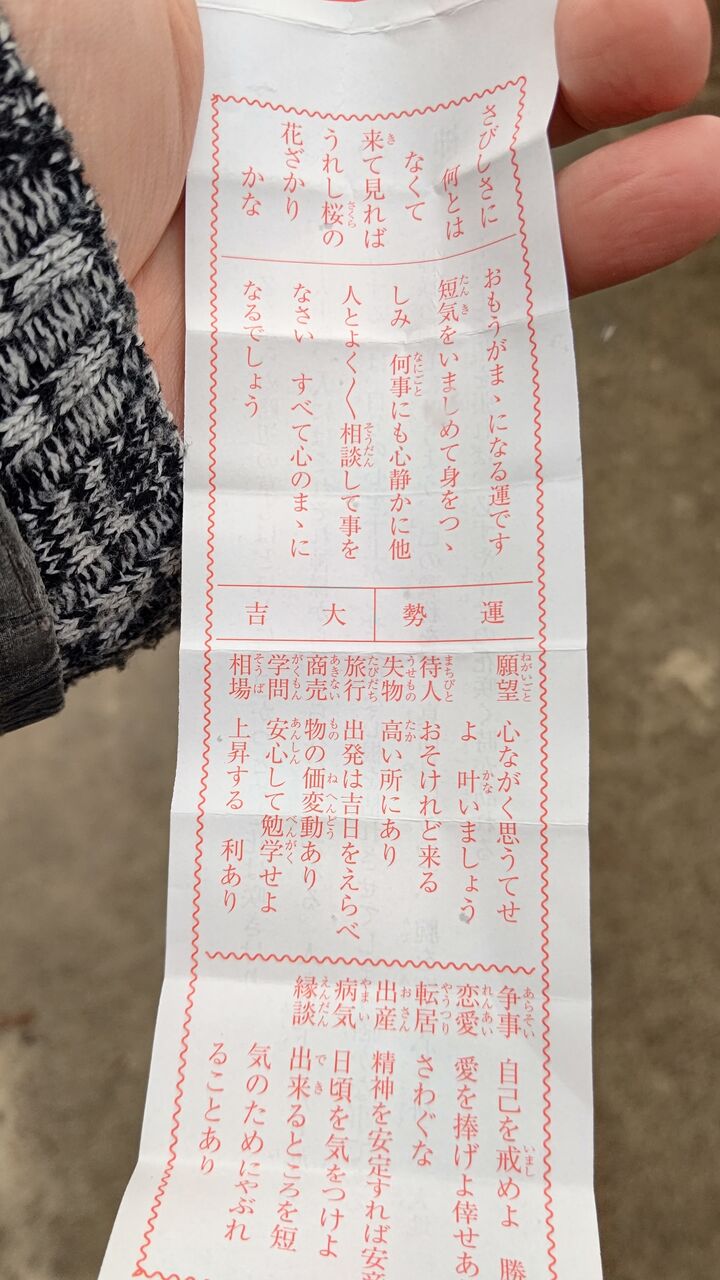 さびしさに
何とは
なくて
来て見れば
うれし桜の
花ざかり
かな
おもうがまゝになる運です
短気をいましめて身をつゝ
しみ 何事にも心静かに他
人とよく〳〵相談して事を
なさい すべて心のまゝに
なるでしょう
運勢 大吉
願望 心ながく思うてせ
よ 叶いましょう
待人 おそけれど来る
失物 高い所にあり
旅行 出発は吉日をえらべ
商売 物の価変動あり
学問 安心して勉学せよ
相場 上昇する 利あり
争事 自己を戒めよ 勝
恋愛 愛を捧げよ倖せあ
転居 さわぐな
出産 精神を安定すれば安産
病気 日頃を気をつけよ
縁談 出来るところを短
気のためにやぶれ
ることあり